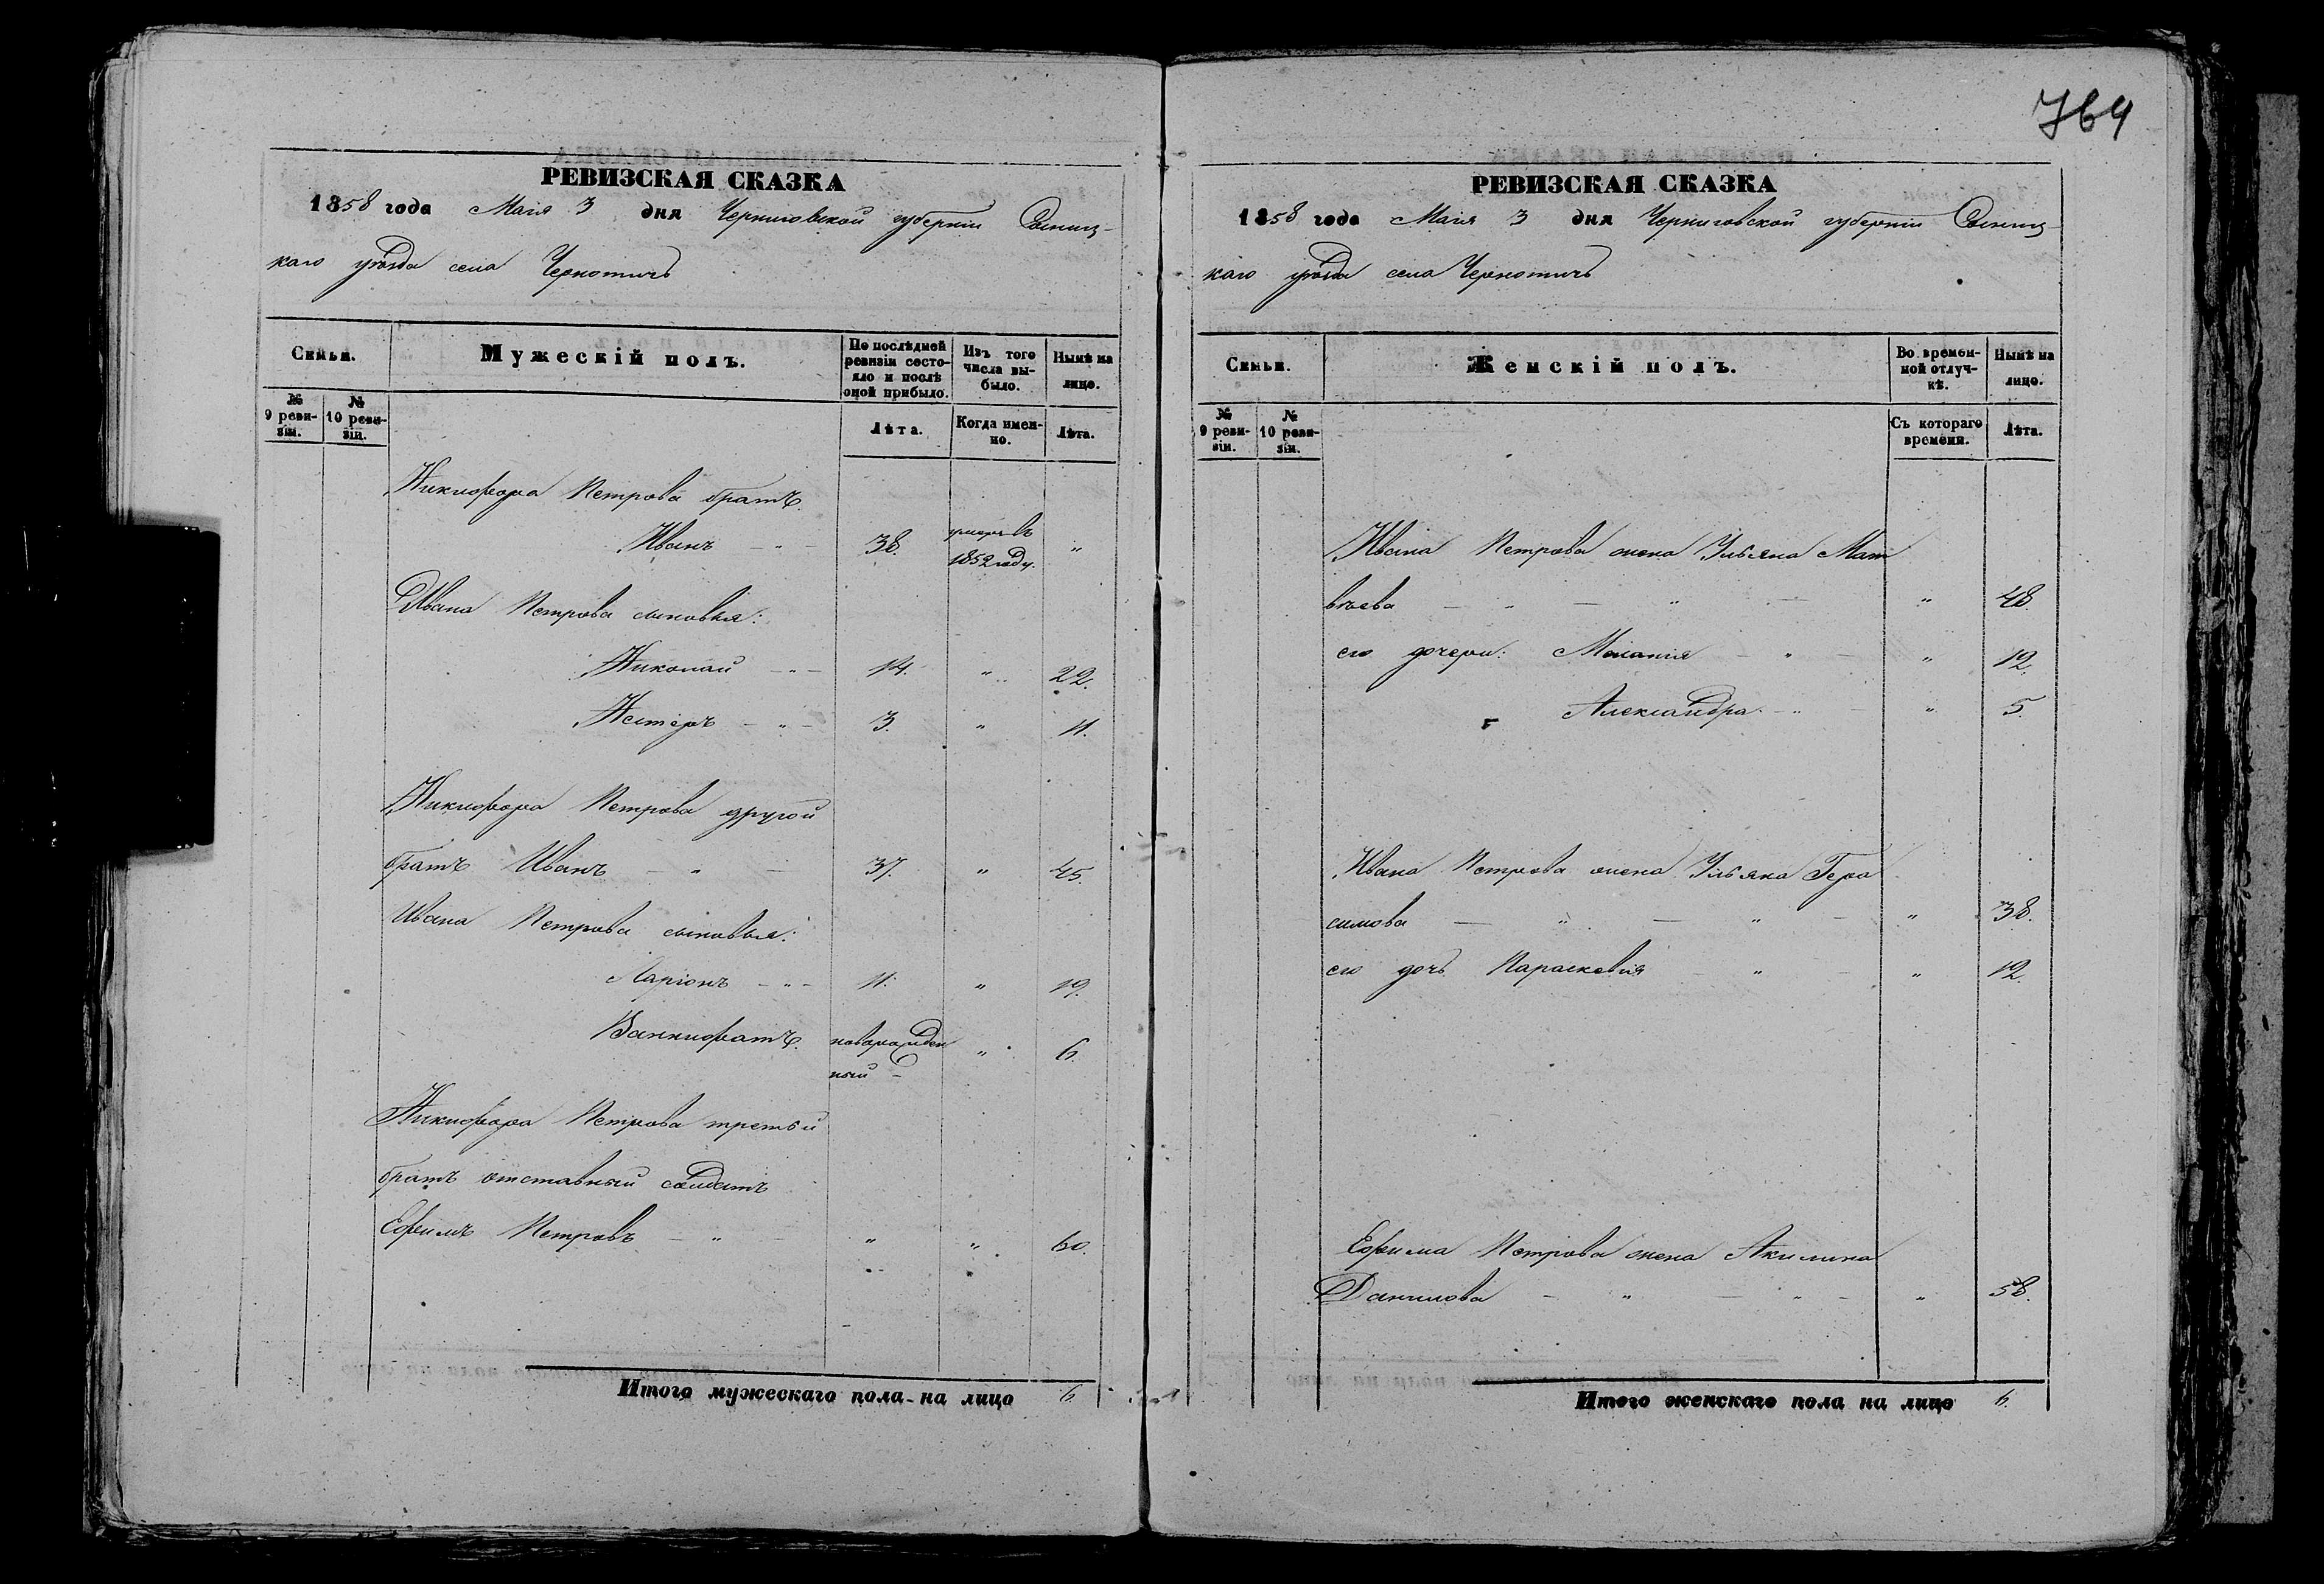 764
РЕВИЗСКАЯ СКАЗКА
1858 года Маія 3 дня Черниговской губерніи Сосниц-
каго уѣзда села Чернотичъ
Семьи.
Мужескій полъ.
По послѣдней ревизіи состо-яло и послѣ оной прибыло.
Изъ того числа вы-было.
Нынѣ на лицо.
№ 9 реви-зіи.
№ 10 реви-зіи.
Лѣта.
Когда имен-но.
Лѣта.
Никифора Петрова братъ
Иванъ — " — 38. умеръ въ 1852 году. "
Ивана Петрова сыновья:
Николай — " — 14. " 22.
Нестеръ — " — 3. " 11.
Никифора Петрова другой
братъ Иванъ — " — 37. " 45.
Ивана Петрова сыновья:
Ларіонъ — " — 11. " 19.
новорожден
ный — " 6.
Никифора Петрова третьи
братъ отставный солдатъ
Ефимъ Петровъ — " — " " 60.
Итого мужескаго пола на лицо 6.
РЕВИЗСКАЯ СКАЗКА
1858 года Маія 3 дня Черниговской губерніи Сосниц-
каго уѣзда села Чернотичъ
Семьи.
Женскій полъ.
Во времен-ной отлуч-кѣ.
Нынѣ на лицо.
№ 9 реви-зіи.
№ 10 реви-зіи.
Съ котораго времени.
Лѣта.
Ивана Петрова жена Ульяна Мат
вѣева — " — " — " 48.
его дочери: Меланія — " — " 12.
Александра — " — " 5.
Ивана Петрова жена Ульяна Гера
симова — " — " — " 38.
его дочь Параскевія " — " 12.
Ефима Петрова жена Акилина
Данилова — " — " — " 58.
Итого женскаго пола на лицо 6.